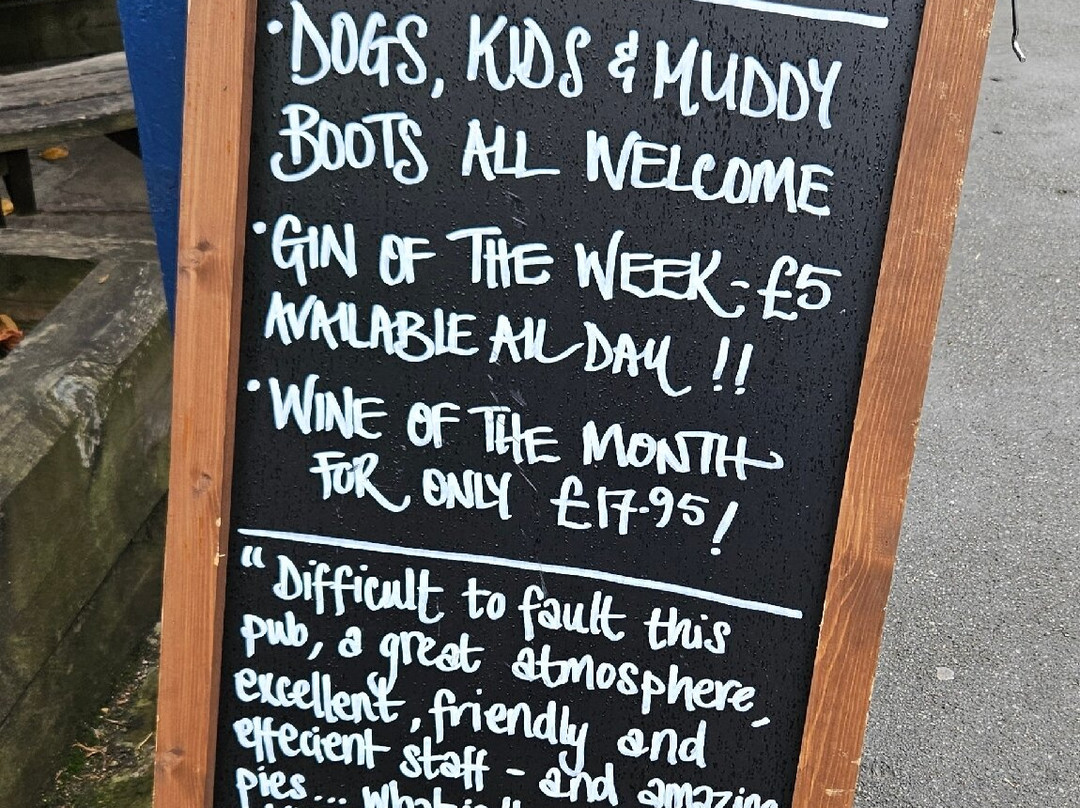 • DOGS, KIDS & MUDDY
BOOTS ALL WELCOME
• GIN OF THE WEEK - £5
AVAILABLE ALL DAY !!
• WINE OF THE MONTH
FOR ONLY £17.95!
"Difficult to fault this
pub, a great atmosphere,
excellent, friendly and
effecient staff - and amazing
pies...